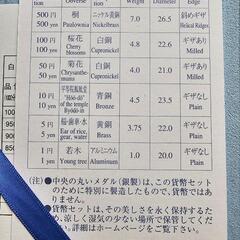 Obverse
Weight
Diameter
Edge
500円
500 yen
桐
Paulownia
ニッケル黄銅
7.0
26.5
斜めギザ
100円
100 yen
桜花
Cherry
blossoms
白銅
Cupronickel
4.8
22.6
ギザあり
Milled
50円
50 yen
菊花
Chrysanthe-
mums
白銅
Cupronickel
4.0
21.0
ギザあり
Milled
10円
10 yen
平等院鳳凰堂
"Hōō-dō"
of the temple
Byōdō-in
青銅
Bronze
4.5
23.5
ギザなし
Plain
5円
5 yen
稲・歯車・水
Ear of rice,
gear, water
黄銅
Brass
3.75
22.0
ギザなし
Plain
1円
1 yen
若木
Young tree
アルミニウム
Aluminum
1.0
20.0
ギザなし
Plain
(注)●中央の丸いメダル(銀製)は、この貨幣セット
のために特別に製造したもので、貨幣ではあり
ません。
●貨幣セットは、その美しさを永く保存するた
め、湿気の少ない場所で保管してくださ
い。詳細はホームページをご覧下さい。